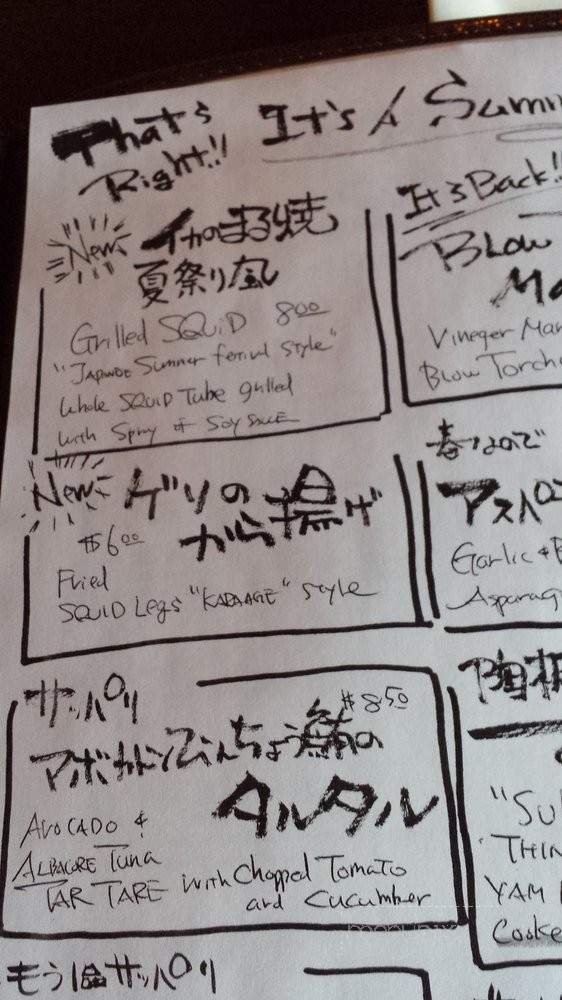 That's
Right!!
It's A Summ
New
イカのまる焼
夏祭り風
Grilled SQUID 8.00
"Japanese Summer festival style"
Whole SQUID Tube grilled
with Spray of Soy Sauce
New
ゲソの
から揚げ
$6.00
Fried
SQUID Legs "KARAAGE" style
サッパリ
$8.50
アボカドと
の
タルタル
AVOCADO &
ALBACORE Tuna
TAR TARE with Chopped Tomato
and Cucumber
もう
サッパリ
It's Back!!
Blow
Ma
Vineger Mar
Blow Torche
春なので
アスパラ
Garlic & B
Asparag
"Su
THIN
YAM
Cooke